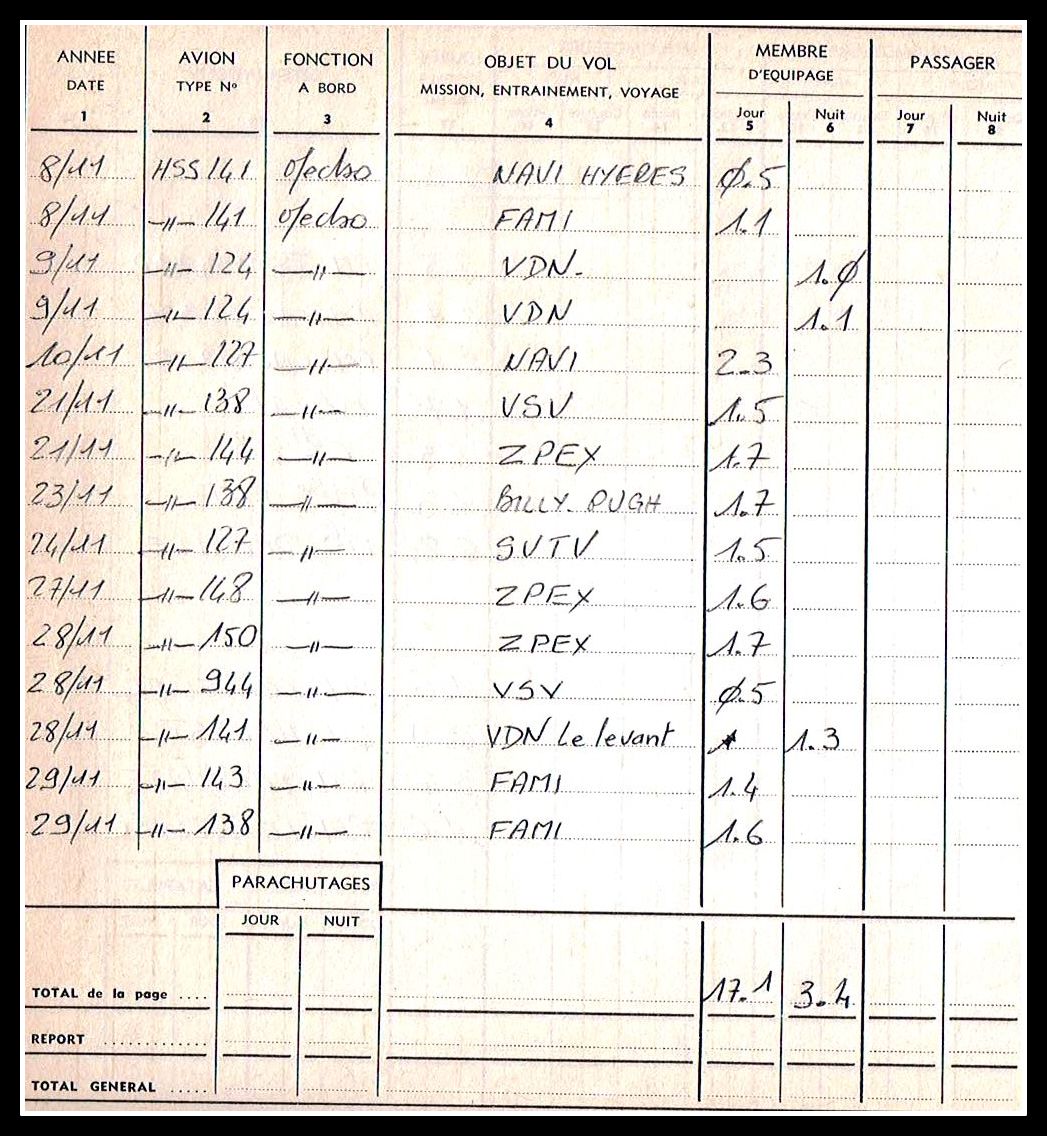 ANNEE AVION FONCTION OBJET DU VOL MEMBRE PASSAGER
DATE TYPE No A BORD MISSION, ENTRAINEMENT, VOYAGE D'EQUIPAGE
Jour Nuit Jour Nuit
1 2 3 4 5 6 7 8
8/11 HSS 141 NAVI HYERES Ø.5
8/11 —"— 141 FAMI 1.1
9/11 —"— 124 —"— VDN- 1.Ø
9/11 —"— 124 —"— VDN 1.1
10/11 —"— 127 —"— NAVI 2.3
21/11 —"— 138 —"— VSV 1.5
21/11 —"— 144 —"— ZPEX 1.7
23/11 —"— 138 —"— BILLY. PUGH 1.7
24/11 —"— 127 —"— SVTV 1.5
27/11 —"— 148 —"— ZPEX 1.6
28/11 —"— 150 —"— ZPEX 1.7
28/11 —"— 944 —"— VSV Ø.5
28/11 —"— 141 —"— VDN Le levant 1.3
29/11 —"— 143 —"— FAMI 1.4
29/11 —"— 138 —"— FAMI 1.6
PARACHUTAGES
JOUR NUIT
TOTAL de la page .... 17.1 3.4
REPORT ............
TOTAL GENERAL .....